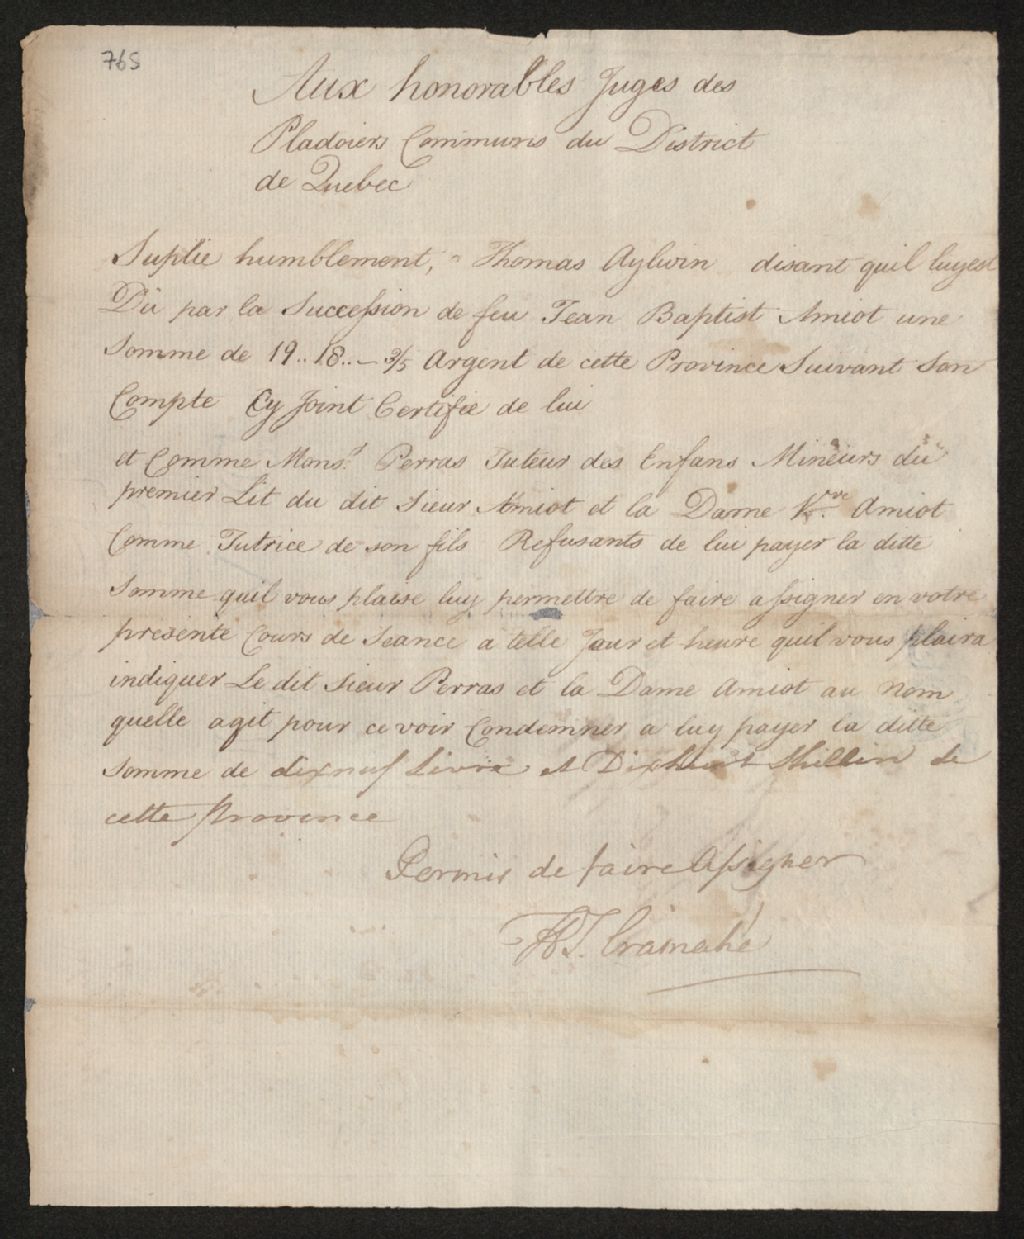 765
Aux honorables Juges des
Pladoiers Communs du District
de Quebec
Suplie humblement, Thomas Aylwin disant quil luy est
Dû par la Succession de feu Jean Baptist Amiot une
Somme de 19..18..– Argent de cette Province Suivant Son
Compte Cy Joint Certifie de lui
et Comme Monsr. Perras Tuteus des Enfans Mineurs du
premier Lit du dit Sieur Amiot et la Dame Vve Amiot
Comme Tutrice de son fils Refusants de lui payer la ditte
Somme quil vous plaise luy permettre de faire assigner en votre
presente Cours de Seance a telle Jour et heure quil vous plaira
indiquer Le dit Sieur Perras et la Dame Amiot au Nom
quelle agit pour ce voir Condemner a luy payer la ditte
Somme de dixneuf Livre et Dixhuit Shillin de
cette Province
Permis de faire Assigner
HT. Cramahé